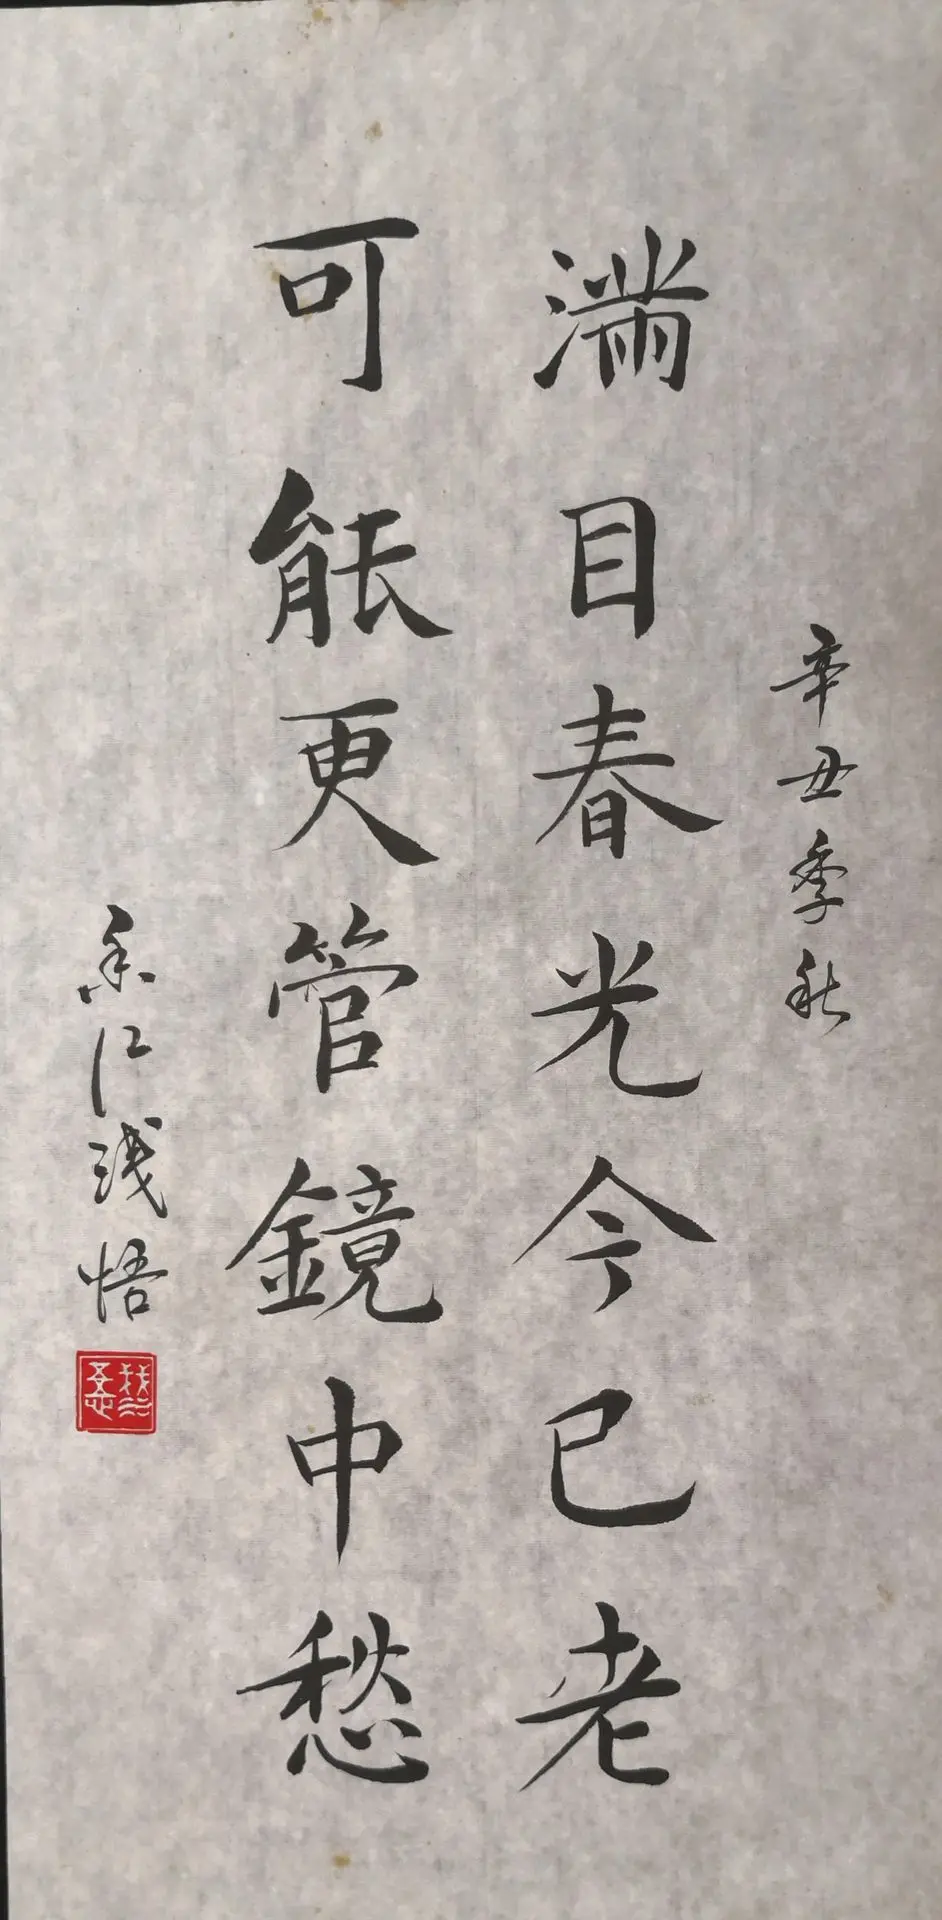 辛丑季秋
满目春光今已老
可能更管鏡中愁
香江浅悟